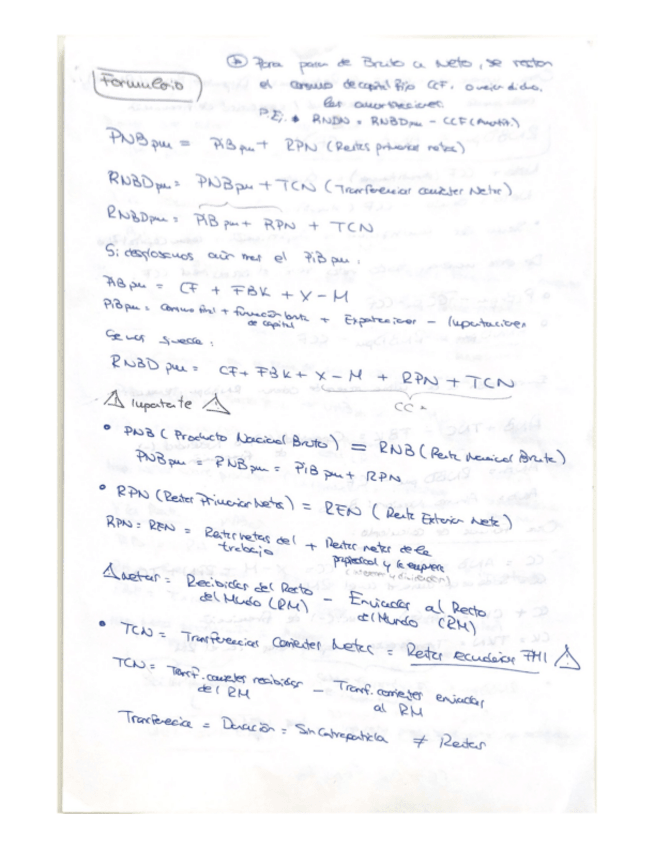 Formulario
* Para pasar de Bruto a Neto, se restan
el consumo de capital fijo CCF, o mejor dicho,
las amortizaciones
P.Ej. * RNDN = RNBDpm - CCF (Amort.)
PNBpm = PiBpm + RPN (Rentas primarias netas)
RNBDpm = PNBpm + TCN (Transferencias corrientes Netas)
RNBDpm = PiBpm + RPN + TCN
Si desglosamos aún mas el PiBpm:
PiBpm = CF + FBK + X - M
PiBpm = Consumo final + formación bruta de capital + Exportaciones - Importaciones
Se nos queda:
RNBDpm = CF + FBK + X - M + RPN + TCN
CC
⚠ Importante ⚠
• PNB (Producto Nacional Bruto) = RNB (Renta Nacional Bruta)
PNBpm = RNBpm = PiBpm + RPN
• RPN (Rentas Primarias Netas) = REN (Renta Exterior Neta)
RPN = REN = Rentas netas del trabajo + Rentas netas de la propiedad y la empresa
⚠ netas = Recibidas del Resto del Mundo (RM) - Enviadas al Resto del Mundo (RM)
• TCN = Transferencias Corrientes Netas = Rentas secundarias FMI ⚠
TCN = Transf. corrientes recibidas del RM - Transf. corrientes enviadas al RM
Transferencia = Donación = Sin Contrapartida ≠ Rentas